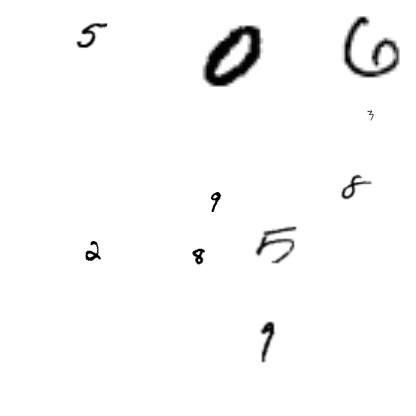 5 0 6
3
8
9
2 8 5
9